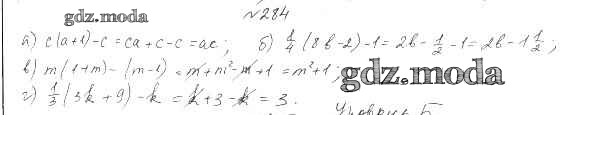 gdz.moda
№284
а) c(a+1)-c = ca+c-c = ac; б) 1/4(8b-2)-1 = 2b-1/2-1 = 2b-1 1/2;
в) m(1+m)-(m-1) = m+m²-m+1 = m²+1;
gdz.moda
г) 1/3(3k+9)-k = k+3-k = 3.